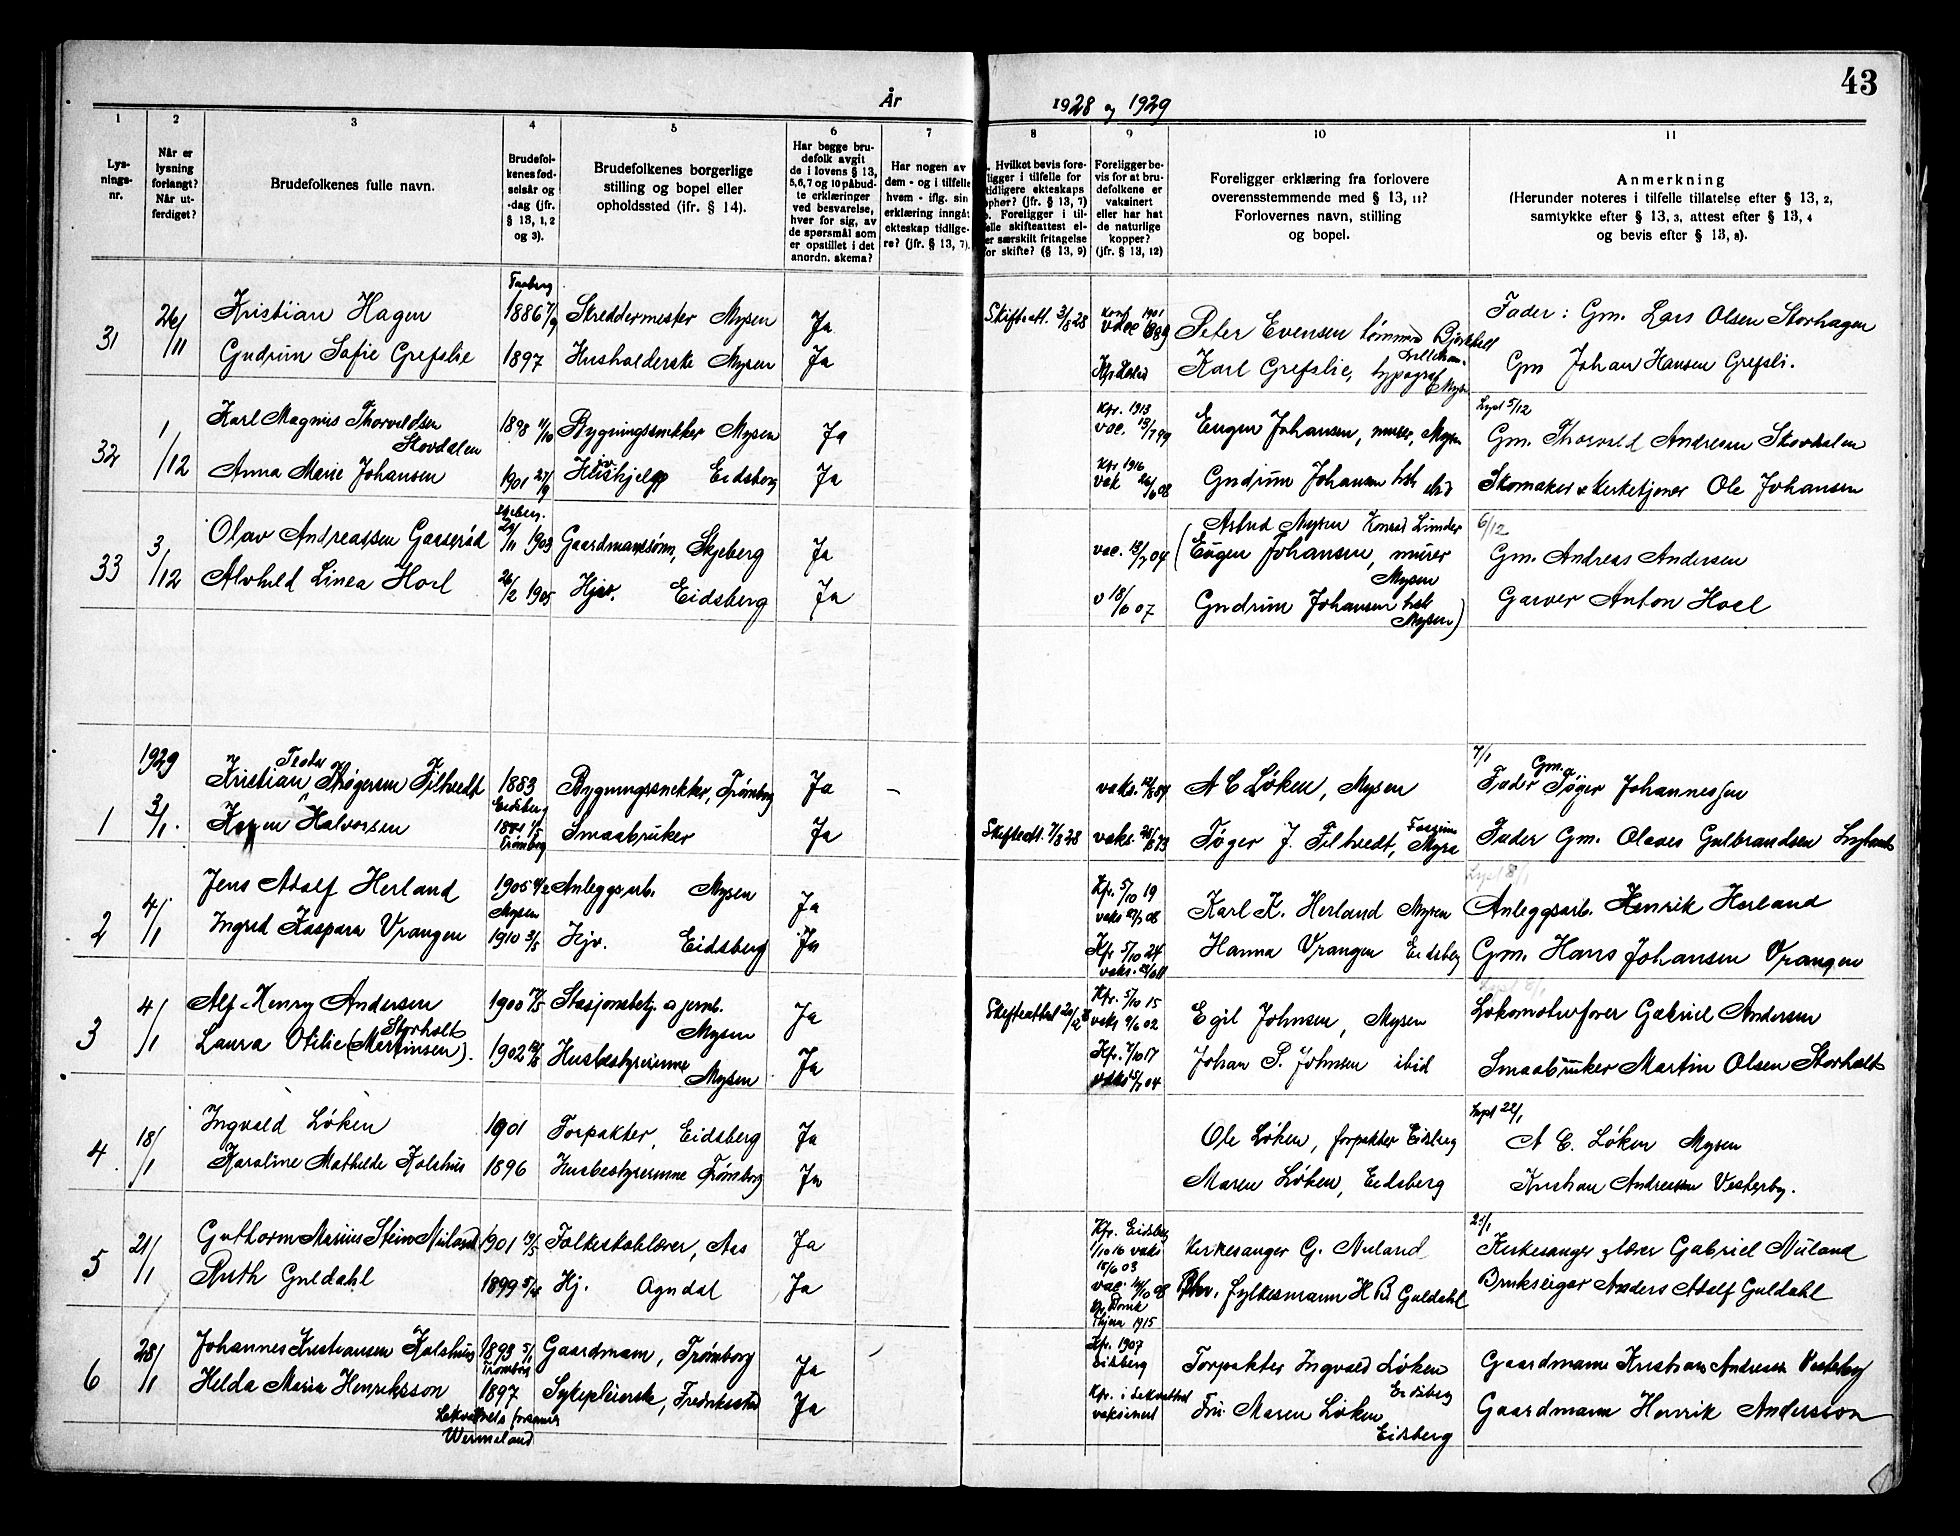 43
År 1928 og 1929
1 2 3 4 5 6 7 8 9 10 11
Lys-
nings-
nr.
Når er
lysning
forlangt?
Når ut-
ferdiget?
Brudefolkenes fulle navn.
Brudefol-
kenes fød-
selsår og
-dag (jfr.
§ 13, 1, 2
og 3).
Brudefolkenes borgerlige
stilling og bopel eller
opholdssted (jfr. § 14).
Har begge bru-
defolk avgit
de i lovens § 13,
5,6,7 og 10 påbud-
te erklæringer
ved besvarelse,
hver for sig, av
de spørsmål som
er opstillet i det
anordn. skema?
Har nogen av
dem - og i tilfelle
hvem - iflg. sin
erklæring inngåt
ekteskap tidlige-
re? (jfr. § 13, 7).
. Hvilket bevis fore-
ligger i tilfelle for
tidligere ekteskaps
ophør? (jfr. § 13, 7)
. Foreligger i til-
felle skifteattest el-
er særskilt fritagelse
for skifte? (§ 13, 9)
Foreligger be-
vis for at bru-
defolkene er
vaksinert
eller har hat
de naturlige
kopper?
(jfr. § 13, 12)
Foreligger erklæring fra forlovere
overensstemmende med § 13, 11?
Forlovernes navn, stilling
og bopel.
Anmerkning
(Herunder noteres i tilfelle tillatelse efter § 13, 2,
samtykke efter § 13, 3, attest efter § 13, 4
og bevis efter § 13, 8).
31 26/11 Kristian Hagen Faaberg 1886 7/9 Skreddermester Mysen Ja Skifteatt. 3/8 28 Konf. 1901 Peter Evensen Fader: Gm. Lars Olsen Storhagen
Gudrun Sofie Grefslie 1897 Husholderske Mysen Ja Karl Grefslie, typograf Mysen Gm Johan Hansen Grefsli.
32 1/12 Karl Magnus Thorvaldsen Skovdalen 1898 11/10 Bygningssnekker Mysen Ja Kfr. 1913 vac. 13/7 99 Eugen Johansen, murer, Mysen Lyst 5/12 Gm. Thorvald Andresen Skovdalen
Anna Marie Johansen 1901 27/9 Hushjelp Eidsberg Ja Kfr. 1916 vak 26/6 08 Gudrun Johansen ibid Skomaker & kirketjener Ole Johansen
33 3/12 Olav Andreassen Gaaserød Skjeberg. 29/11 1903 Gaardmannssønn, Skjeberg Ja vac. 18/7 04 (Astrid Mysen Konrad Linder Eugen Johansen, murer Mysen 6/12 Gm. Andreas Andersen
Alvhild Linea Hoel 26/2 1905 Hjv. Eidsberg Ja v 18/6 07 Gudrun Johansen Mysen) Garver Anton Hoel
1929
1 3/1. Kristian Teodor Thøgersen Filtvedt 1883 Eidsberg Bygningssnekker, Trømborg Ja - vaks. A C Løken, Mysen 7/1 Fader Gm. Tøger Johannessen
Karen Halvorsen Trømborg Smaabruker Ja Skifteatt. 7/8 28 vaks. Tøger J. Filtvedt, Myra Fader Gm. Olaves Gulbrandsen
2 4/1 Jens Adolf Herland 1905 4/2 Mysen Anleggsarb. Mysen Ja Kfr. 5/10 19 vaks Karl K. Herland Mysen Lyst 8/1 Anleggsarb. Henrik Herland
Ingrid Kaspara Vrangen 1910 3/5 Hjv. Eidsberg Ja Kfr 5/10 24 vaks. Hanna Vrangen Eidsberg Gm. Hans Johansen Vrangen
3 4/1 Alf Henry Andersen 1900 Stasjonsbetj. a jernb. Mysen Ja Skifteattest Kfr. 5/10 15 vaks 9/6 02 Egil Johnsen, Mysen Lokomotivfører Gabriel Andersen
Laura Otilie (Martinsen) Storholt. 1902 Husbestyrerinne Mysen Ja Kfr. 7/10 17 Johan P. Johnsen ibid Smaabruker Martin Olsen Storholt
4 18/1 Ingvald Løken 1901 Forpakter, Eidsberg Ja Ole Løken, forpakter Eidsberg Lyst 22/1 A C. Løken Mysen
Karoline Mathilde Kolshus 1896 Husbestyrerinne Trømborg Ja Maren Løken, Eidsberg Kristian Andreassen Vesterby.
5 21/1 Guthorm Marius Stein Nuland 1901 19/5 Folkeskolelærer, Aas Ja Kfr. Eidsberg 1/10 16 vaks 15/6 03 Kirkesanger G. Nuland 21/1 Kirkesanger & lærer Gabriel Nuland
Ruth Guldahl 1899 Hj. Ogndal Ja vac. 14/10 08 1915 fylkesmann H B Guldahl Brukseigar Anders Adolf Guldahl
6 28/1 Johannes Kristiansen Kolshus 1893 5/1 Trømborg Gaardmann, Trømborg Ja Kfr. 1907 Eidsberg Forpakter Ingvald Løken Eidsberg Gaardmann Kristian Andreassen Vesterby
Helda Maria Henriksson 1897 Wermeland Sykepleierske, Fredrikstad Ja Kfr. i vaksinert Fru Maren Løken, Eidsberg Gaardmann Henrik Andersson